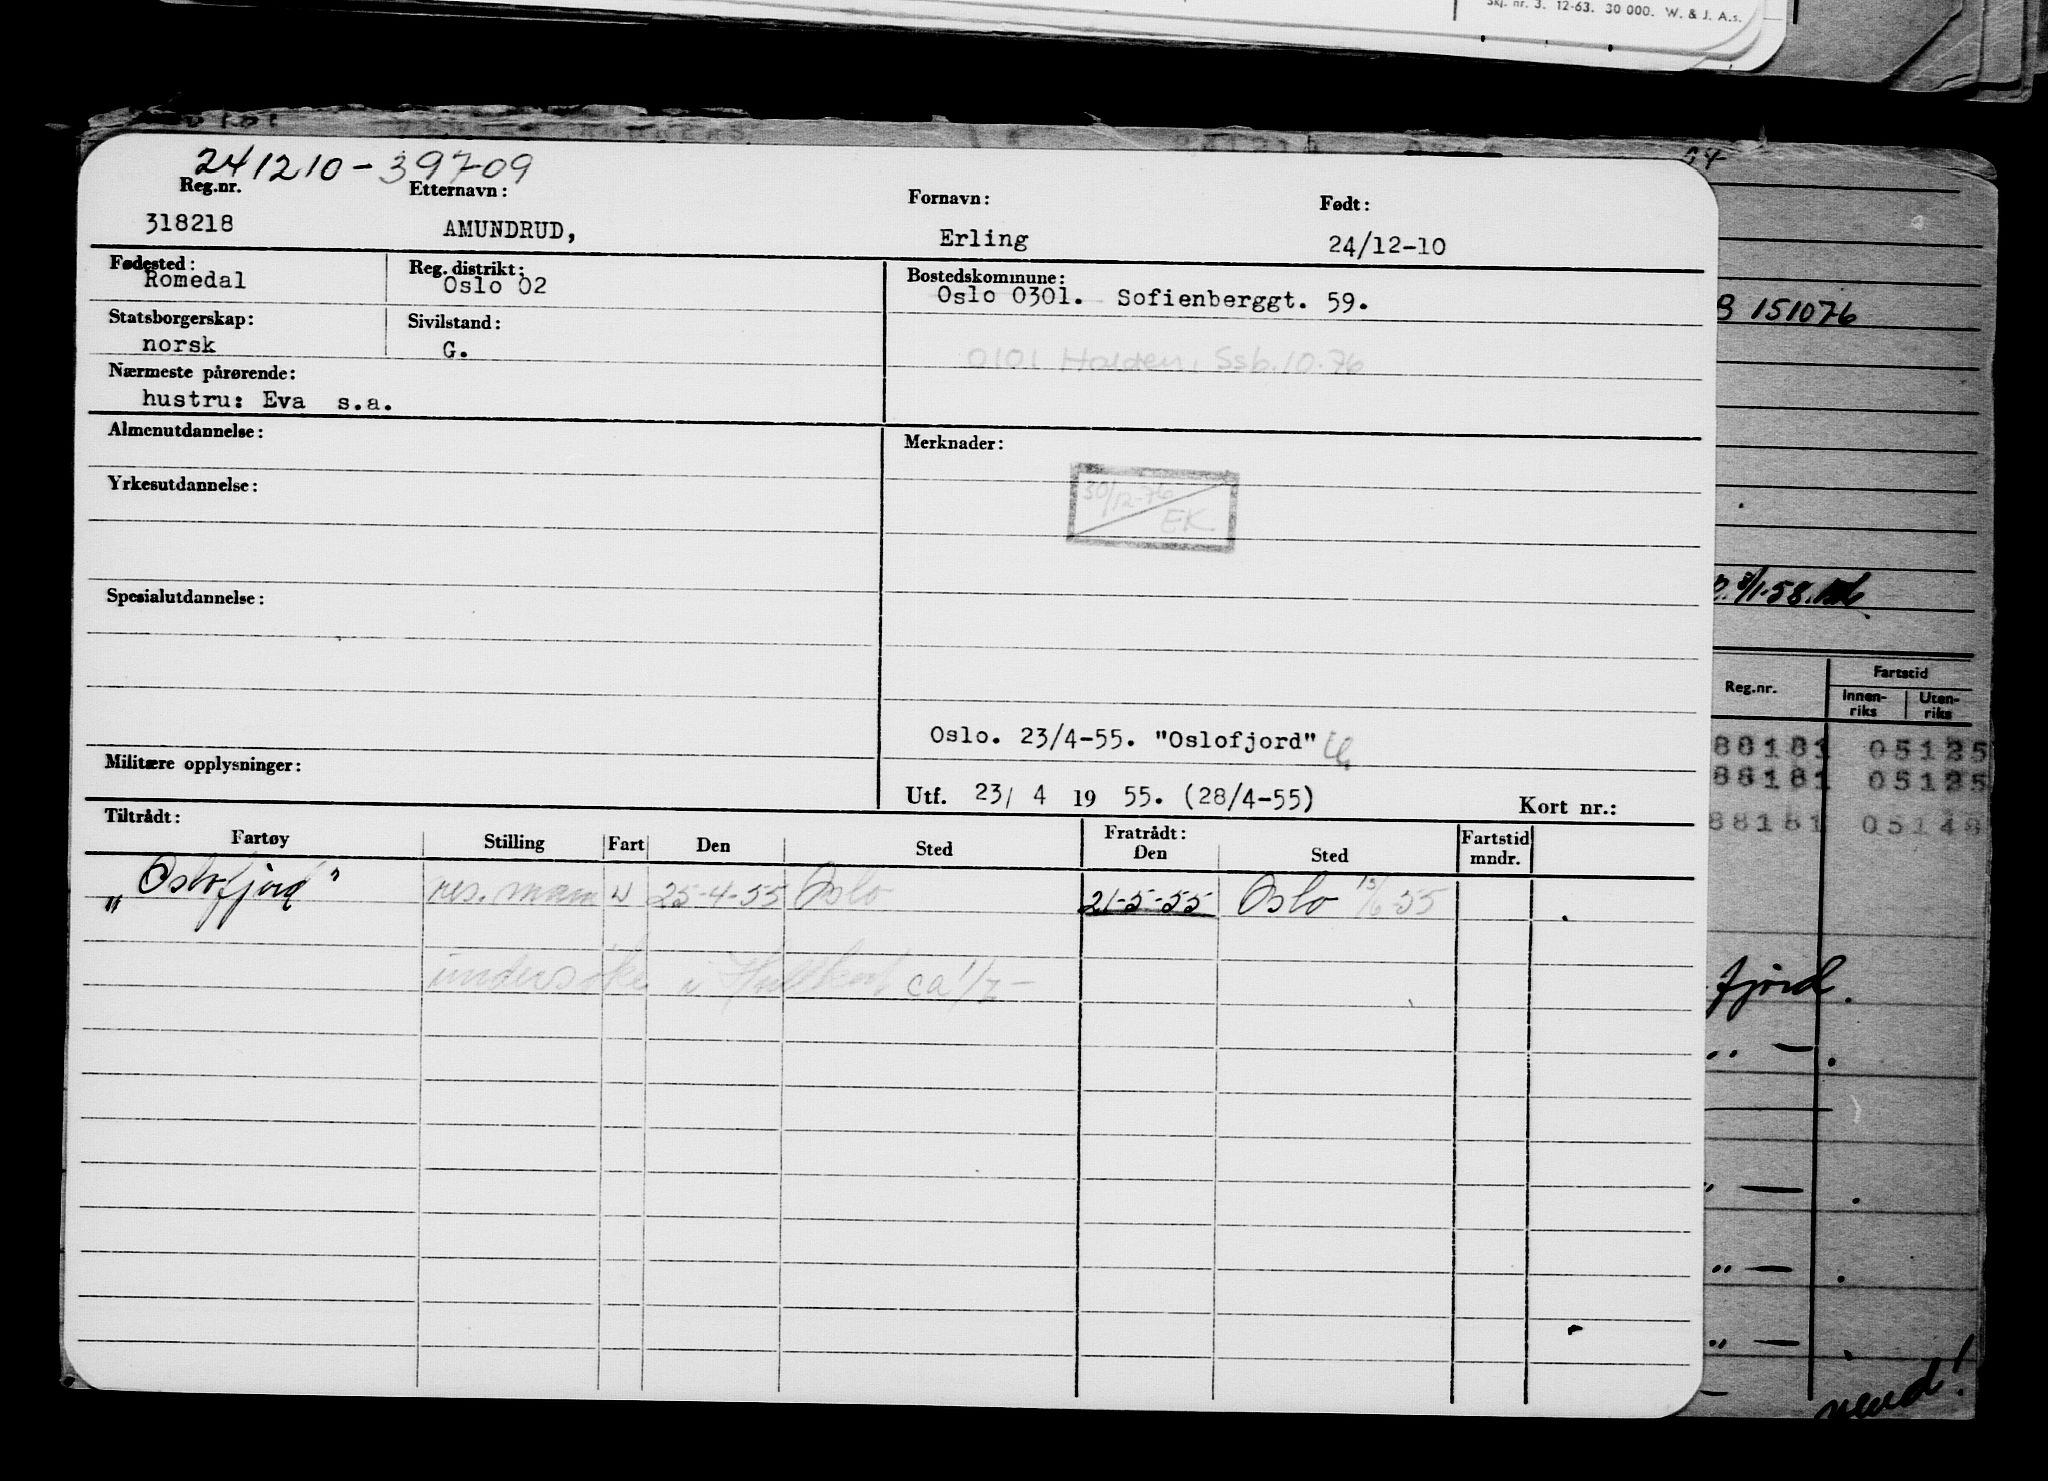 Skj. nr. 3. 12-63. 30 000. W. & J. A.s.
241210-39709
Reg.nr. Etternavn: Fornavn: Født:
318218 AMUNDRUD, Erling 24/12-10
Fødested: Reg. distrikt: Bostedskommune:
Romedal Oslo 02 Oslo 0301. Sofienberggt. 59.
Statsborgerskap: Sivilstand:
norsk G.
0101 Halden, Ssb. 10.76
Nærmeste pårørende:
hustru: Eva s.a.
Almenutdannelse: Merknader:
Yrkesutdannelse:
30/12-76
EK
Spesialutdannelse:
Oslo. 23/4-55. "Oslofjord"
Militære opplysninger:
Utf. 23/ 4 19 55. (28/4-55) Kort nr.:
Tiltrådt: Fratrådt: Fartstid
Fartøy Stilling Fart Den Sted Den Sted mndr.
"Oslofjord" res. mann U 25-4-55 Oslo 21-5-55 Oslo 13/6-55
undersøkes ca 1/7-
B 151076
Fartstid
Reg.nr. Innen-riks Uten-riks
88181 05125
88181 05125
88181 05148
fjord.